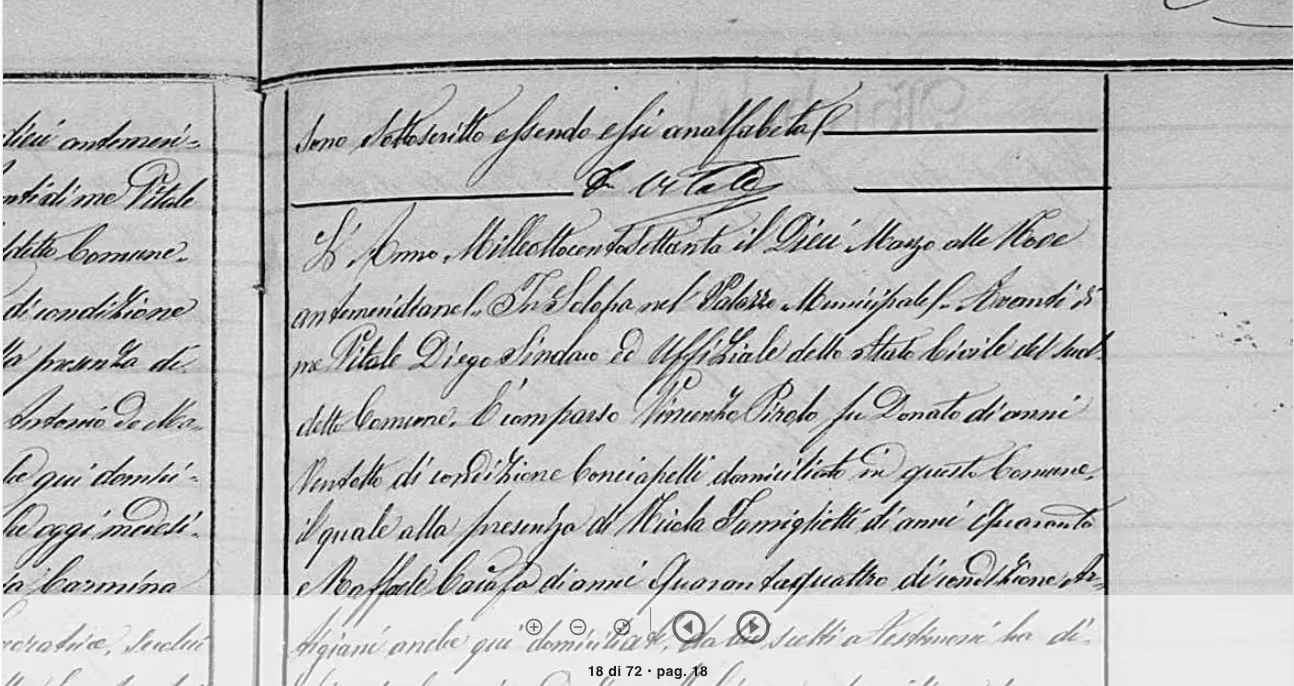 dieci antemeri=
Vitale
detto Comune.
di condizione
presenza di
Antonio De Ma=
qui domici=
oggi medesi=
Carmina
sono sottoscritto essendo essi analfabeta
D Vitale
L'Anno Milleottocentosettanta il Dieci Marzo alle Nove
antemeridiane. In Solofra nel Palazzo Municipale. Avanti di
me Vitale Diego Sindaco ed Uffiziale dello Stato Civile del sud=
detto Comune. È comparso Vincenzo Pirolo fu Donato di anni
Ventotto di condizione Conciapelli domiciliato in questo Comune,
il quale alla presenza di Nicola Famiglietti di anni Quaranta
e Raffaele Carafa di anni Quarantaquattro di condizione Ar=
tigiani anche qui domiciliati, da lui scelti a testimoni ha di=
18 di 72 • pag. 18